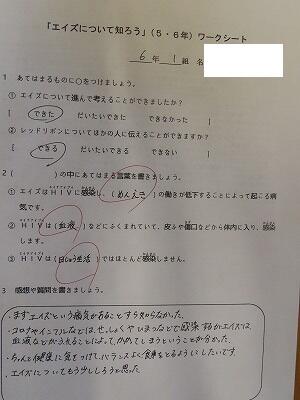 「エイズについて知ろう」（5・6年）ワークシート
6年 1組 名
1 あてはまるものに○をつけましょう。
① エイズについて進んで考えることができましたか？
[ できた だいたいできた できなかった ]
② レッドリボンについてほかの人に伝えることができますか？
[ できる だいたいできる できない ]
2 ( )の中にあてはまる言葉を書きましょう。
① エイズはＨＩＶに感染し、(めんえき)の働きが低下することによって起こる病
気です。
② ＨＩＶは(血液)などにふくまれていて、皮ふや傷口などから体内に入り、感染
します。
③ ＨＩＶは(日じょう生活)ではほとんど感染しません。
3 感想や質問を書きましょう。
・まずエイズという病気があることすら知らなかった。
・コロナやインフルなどは、せっしょくや
感染するがエイズは、
血液などがふれることによって、かかってしまうということが分かった。
・ちゃんと健康に気をつけて、バランスよく食事をとるようにしたいです。
・エイズについてもう少ししろうと思った